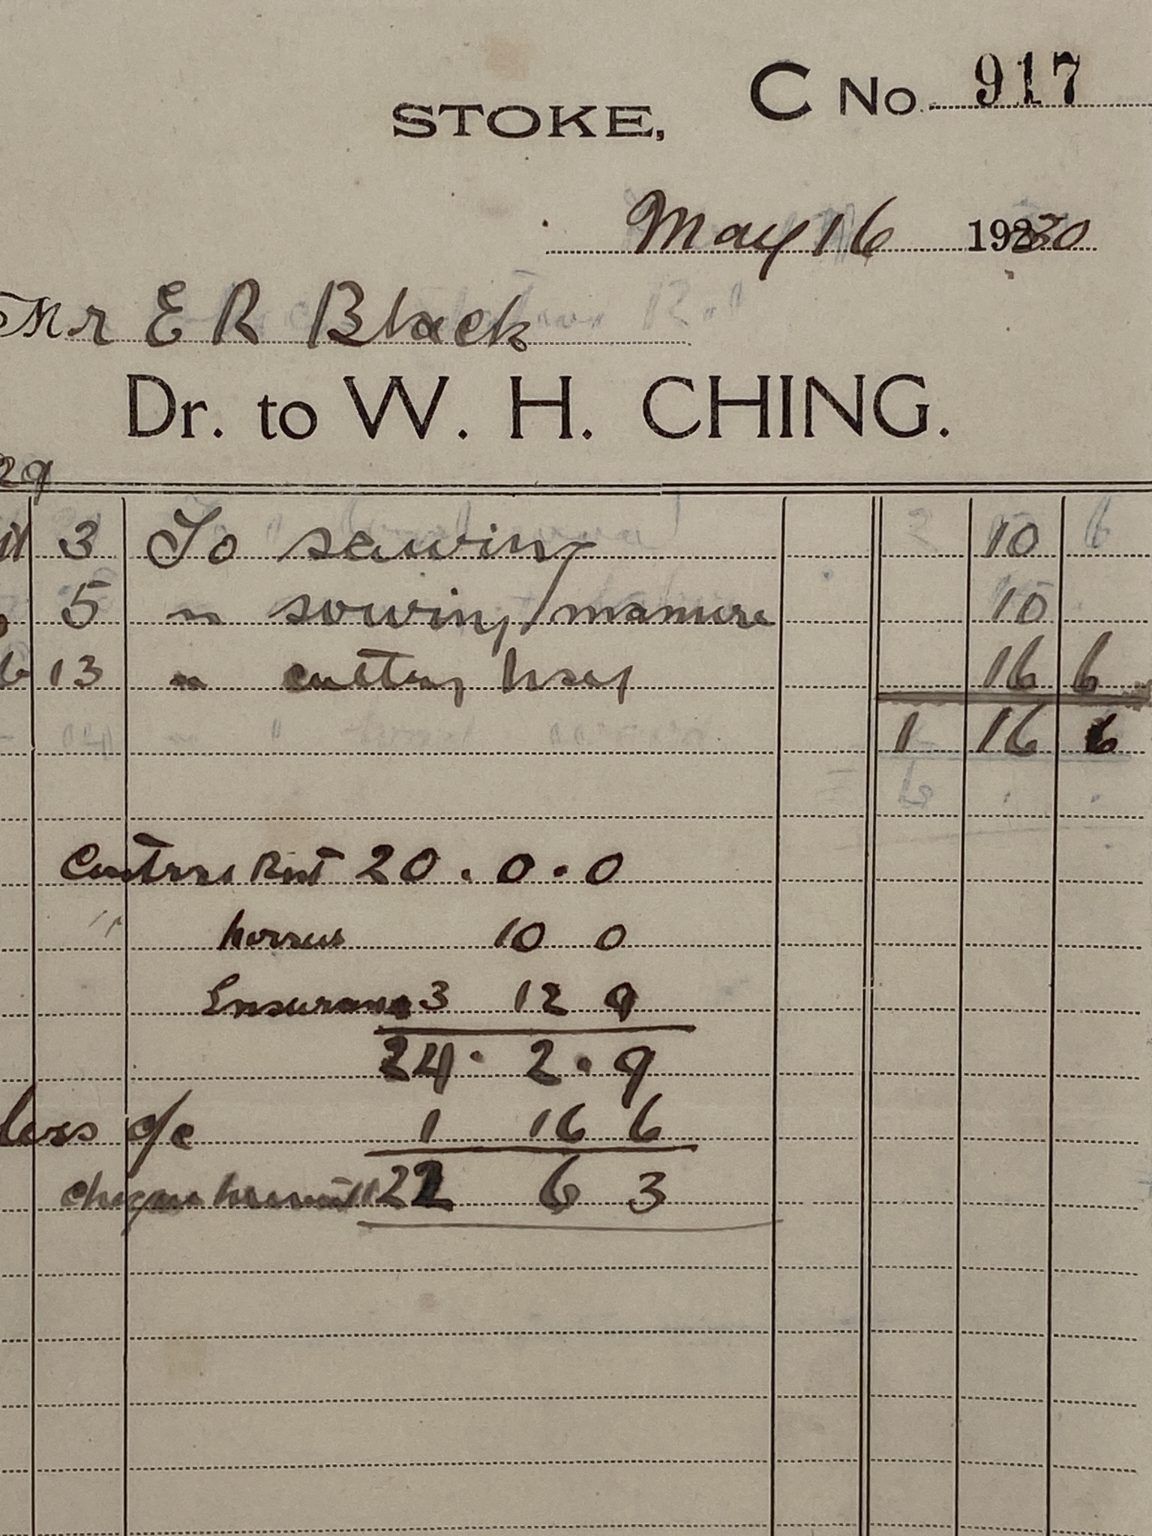 STOKE,
C No. 917
May 16 1930
Mr E R Black
Dr. to W. H. CHING.
29
3 To sewing 10
5 " sowing manure 10
13 " cutting hay 16 6
1 16 6
Rent 20 . 0 . 0
" horses 10 0
Insurance 3 12 9
24 . 2 . 9
less a/c 1 16 6
cheque herewith 22 6 3